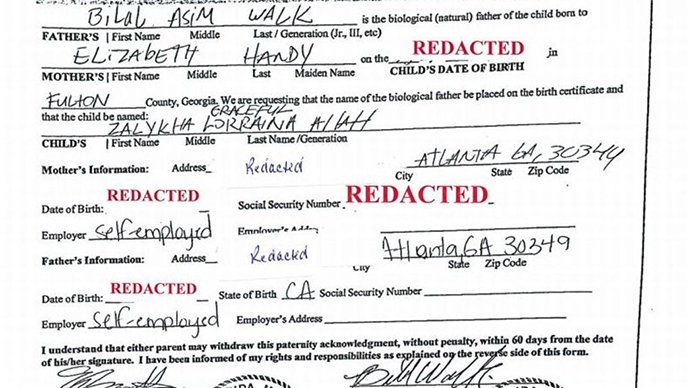 BILAL ASIM WALK is the biological (natural) father of the child born to
FATHER'S | First Name Middle Last / Generation (Jr., III, etc)
ELIZABETH HANDY on the REDACTED in
MOTHER'S | First Name Middle Last Maiden Name CHILD'S DATE OF BIRTH
FULTON County, Georgia. We are requesting that the name of the biological father be placed on the birth certificate and
that the child be named: GRACEFUL
ZALYKHA LORRAINA Allah
CHILD'S | First Name Middle Last Name /Generation
Mother's Information: Address_ Redacted ATLANTA GA, 30349
City State Zip Code
Date of Birth: REDACTED Social Security Number REDACTED
Employer self-employed
Father's Information: Address_ Redacted Atlanta, GA 30349
City State Zip Code
Date of Birth: REDACTED State of Birth CA Social Security Number
Employer self-employed Employer's Address
I understand that either parent may withdraw this paternity acknowledgment, without penalty, within 60 days from the date
of his/her signature. I have been informed of my rights and responsibilities as explained on the reverse side of this form.